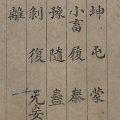 坤屯蒙
小畜履泰
豫隨蠱
剝復无妄
離